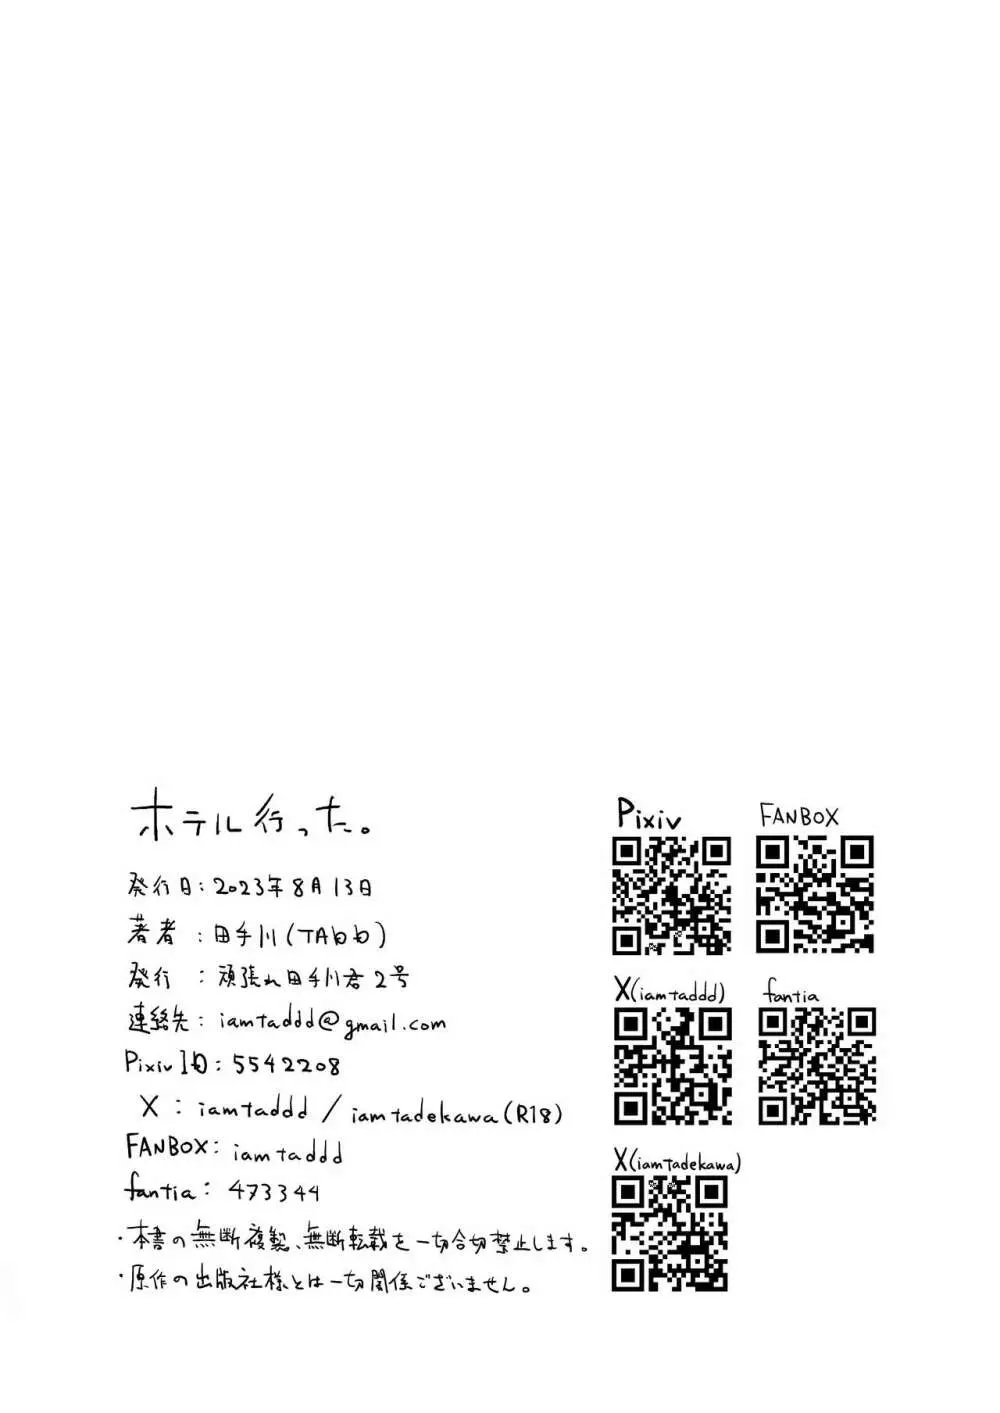 ホテル行った。
発行日：2023年8月13日
著者：田手川(TAbb)
発行：頑張れ田手川君2号
連絡先：iamtaddd@gmail.com
Pixiv ID：5542208
X：iamtaddd / iamtadekawa(R18)
FANBOX：iamtaddd
fantia：473344
・本書の無断複製、無断転載を一切合切禁止します。
・原作の出版社様とは一切関係ございません。
Pixiv
FANBOX
X(iamtaddd)
fantia
X(iamtadekawa)